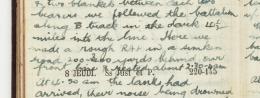 & two blankets between each two
bearers we followed the battalion
along B track in the dark 1½
miles into the line. Here we
made a rough RAP in a sunken
road 200-300 yards behind our
front line & reached about 2.30 am
8 JEUDI. SS Just et P. 220-145
At 4.30 am the tanks had
arrived, their noise being drowned